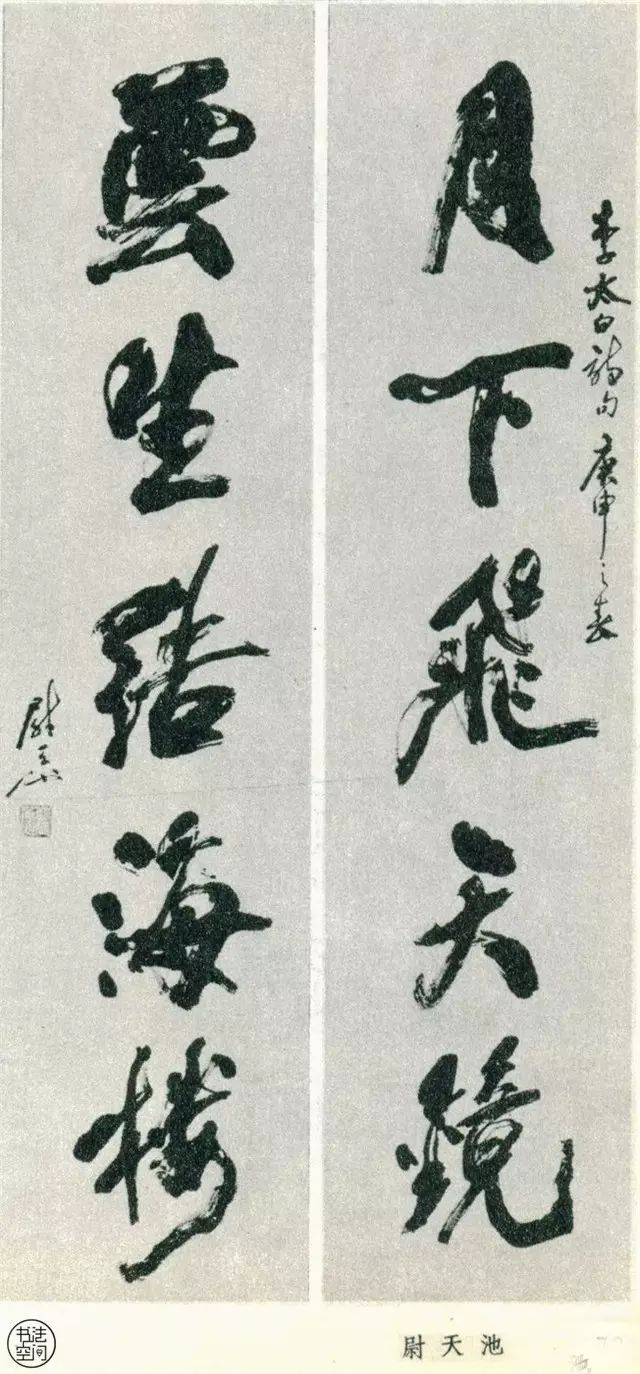 李太白詩句 庚申之春
月下飛天鏡
雲生結海樓
尉天池
尉天池
书法
空间